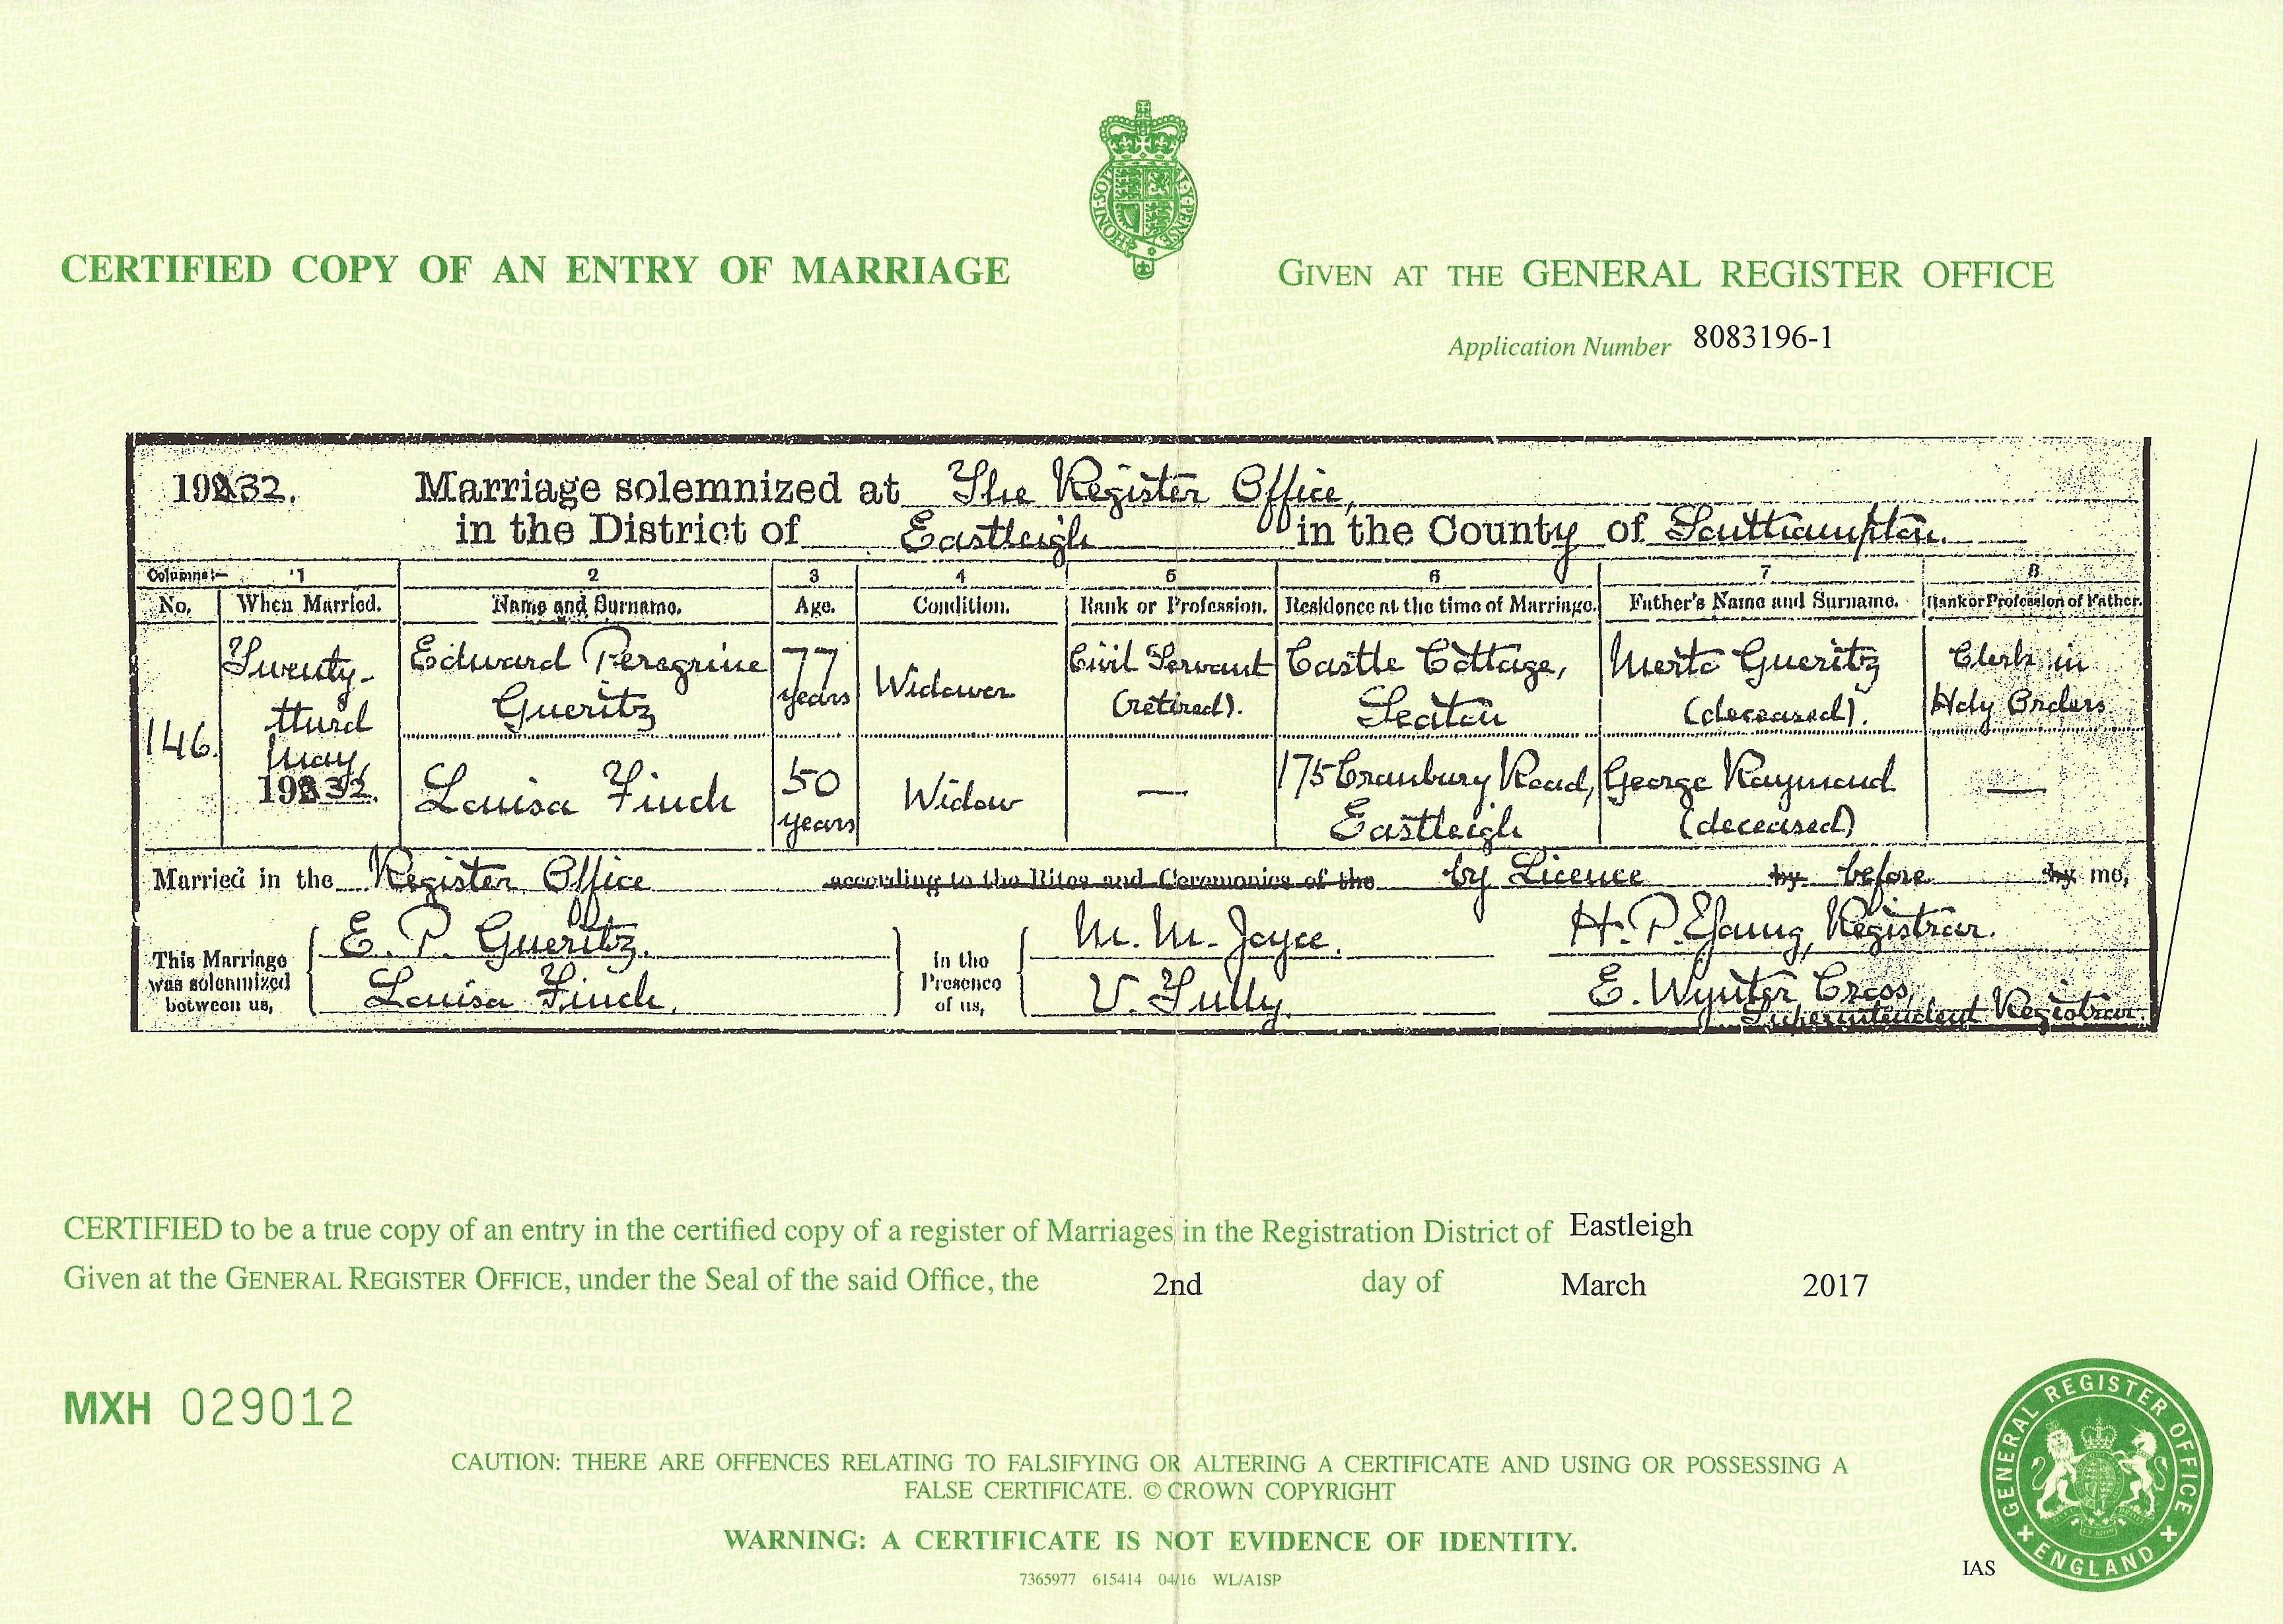 HONI·SOI AL·Y·PENSE
CERTIFIED COPY OF AN ENTRY OF MARRIAGE
GIVEN AT THE GENERAL REGISTER OFFICE
Application Number 8083196-1
1932. Marriage solemnized at The Register Office,
in the District of Eastleigh in the County of Southampton.
Columns:— 1 2 3 4 5 6 7 8
No. When Married. Name and Surname. Age. Condition. Rank or Profession. Residence at the time of Marriage. Father's Name and Surname. Rank or Profession of Father.
146. Twenty-third May, 1932. Edward Peregrine Gueritz 77 years Widower Civil Servant (retired). Castle Cottage, Seaton Gueritz (deceased). Clerk in Holy Orders
Louisa Finch 50 years Widow — 175 Cranbury Road, Eastleigh George Raymond (deceased) —
Married in the Register Office according to the Rites and Ceremonies of the by Licence by before by me,
This Marriage was solemnized between us, E. P. Gueritz. Louisa Finch. in the Presence of us, M. M. Joyce. V. Tully. H. P. Young, Registrar.
E. Wynter Cross, Superintendent Registrar.
CERTIFIED to be a true copy of an entry in the certified copy of a register of Marriages in the Registration District of Eastleigh
Given at the GENERAL REGISTER OFFICE, under the Seal of the said Office, the 2nd day of March 2017
MXH 029012
CAUTION: THERE ARE OFFENCES RELATING TO FALSIFYING OR ALTERING A CERTIFICATE AND USING OR POSSESSING A
FALSE CERTIFICATE. © CROWN COPYRIGHT
WARNING: A CERTIFICATE IS NOT EVIDENCE OF IDENTITY.
7365977 615414 04/16 WL/A1SP
IAS
GENERAL REGISTER OFFICE
ENGLAND